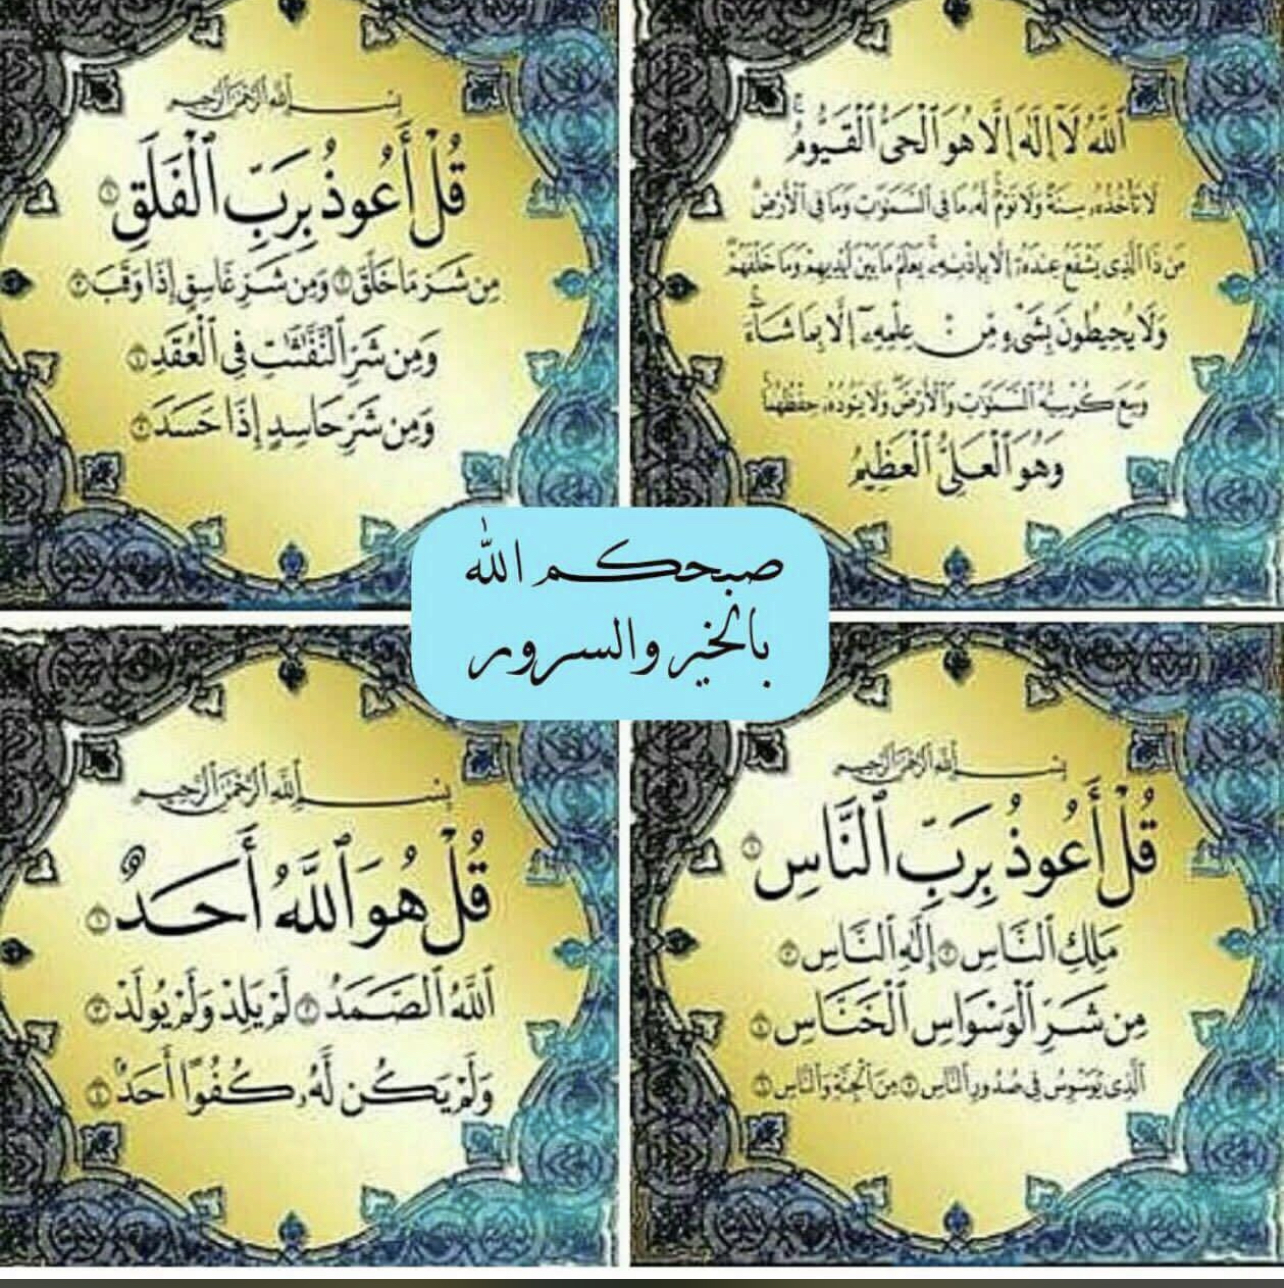 ٱللَّهُ لَآ إِلَٰهَ إِلَّا هُوَ ٱلْحَىُّ ٱلْقَيُّومُ
لَا تَأْخُذُهُۥ سِنَةٌ وَلَا نَوْمٌ لَّهُۥ مَا فِى ٱلسَّمَٰوَٰتِ وَمَا فِى ٱلْأَرْضِ
مَن ذَا ٱلَّذِى يَشْفَعُ عِندَهُۥٓ إِلَّا بِإِذْنِهِۦ يَعْلَمُ مَا بَيْنَ أَيْدِيهِمْ وَمَا خَلْفَهُمْ
وَلَا يُحِيطُونَ بِشَىْءٍ مِّنْ عِلْمِهِۦٓ إِلَّا بِمَا شَآءَ
وَسِعَ كُرْسِيُّهُ ٱلسَّمَٰوَٰتِ وَٱلْأَرْضَ وَلَا يَـُٔودُهُۥ حِفْظُهُمَا
وَهُوَ ٱلْعَلِىُّ ٱلْعَظِيمُ
بِسْمِ ٱللَّهِ ٱلرَّحْمَٰنِ ٱلرَّحِيمِ
قُلْ أَعُوذُ بِرَبِّ ٱلْفَلَقِ ١
مِن شَرِّ مَا خَلَقَ ٢ وَمِن شَرِّ غَاسِقٍ إِذَا وَقَبَ ٣
وَمِن شَرِّ ٱلنَّفَّٰثَٰتِ فِى ٱلْعُقَدِ ٤
وَمِن شَرِّ حَاسِدٍ إِذَا حَسَدَ ٥
صبحكم الله
بالخير والسرور
بِسْمِ ٱللَّهِ ٱلرَّحْمَٰنِ ٱلرَّحِيمِ
قُلْ أَعُوذُ بِرَبِّ ٱلنَّاسِ ١
مَلِكِ ٱلنَّاسِ ٢ إِلَٰهِ ٱلنَّاسِ ٣
مِن شَرِّ ٱلْوَسْوَاسِ ٱلْخَنَّاسِ ٤
ٱلَّذِى يُوَسْوِسُ فِى صُدُورِ ٱلنَّاسِ ٥ مِنَ ٱلْجِنَّةِ وَٱلنَّاسِ ٦
بِسْمِ ٱللَّهِ ٱلرَّحْمَٰنِ ٱلرَّحِيمِ
قُلْ هُوَ ٱللَّهُ أَحَدٌ ١
ٱللَّهُ ٱلصَّمَدُ ٢ لَمْ يَلِدْ وَلَمْ يُولَدْ ٣
وَلَمْ يَكُن لَّهُۥ كُفُوًا أَحَدٌ ٤